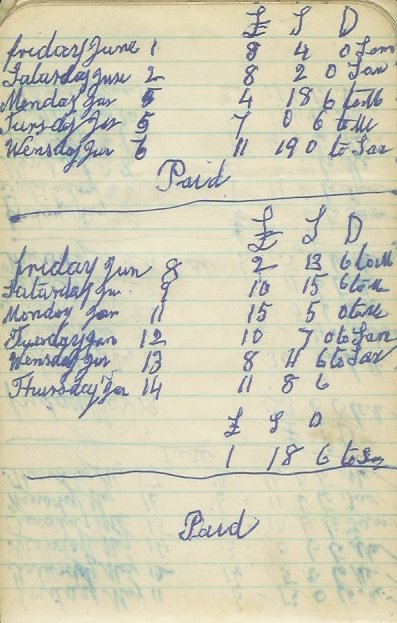 £ S D
friday June 1 8 4 0 Jam
Saturday June 2 8 2 0 Jan
Monday Jun 5 4 18 6 to M
Tursday Jun 5 7 0 6 to M
Wensday Jun 6 11 19 0 to Jax
Paid
£ S D
friday Jun 8 2 13 6 to M
Saturday Ju 9 10 15 6 to M
Monday Jun 11 15 5 0 to M
Tuesday Jun 12 10 7 0 to Jan
Wensday Jun 13 8 4 6 to Jax
Thursday Jun 14 11 8 6
£ S D
1 18 6 to
Paid